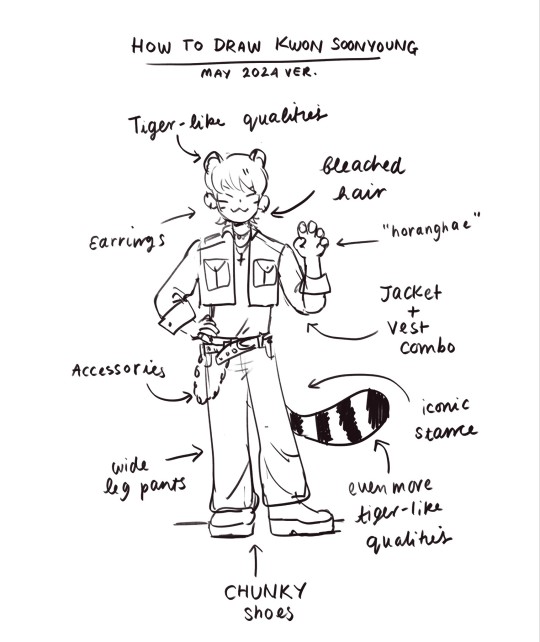 HOW TO DRAW KWON SOONYOUNG
MAY 2024 VER.
Tiger-like qualities
Bleached
hair
Earrings
"horanghae"
Jacket
+
Vest
combo
Accessories
iconic
stance
wide
leg pants
even more
tiger-like
qualities
CHUNKY
shoes